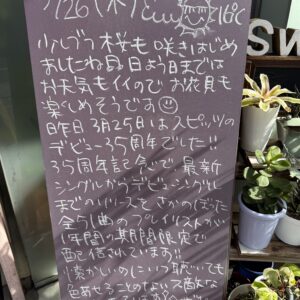 3/26(木)
少しづつ桜も咲きはじめ
ましたね 日よう日までは
お天気もイイので お花見も
楽しめそうです
昨日 3月25日はスピッツの
デビュー35周年でした!!
35周年記念で、最新
シングルからデビューシングル
までのリリースをさかのぼった
全91曲のプレイリストが
1年間の期間限定で
配信されています!!
懐かしいのにいつ聴いても
色あせることのない素敵な
SW